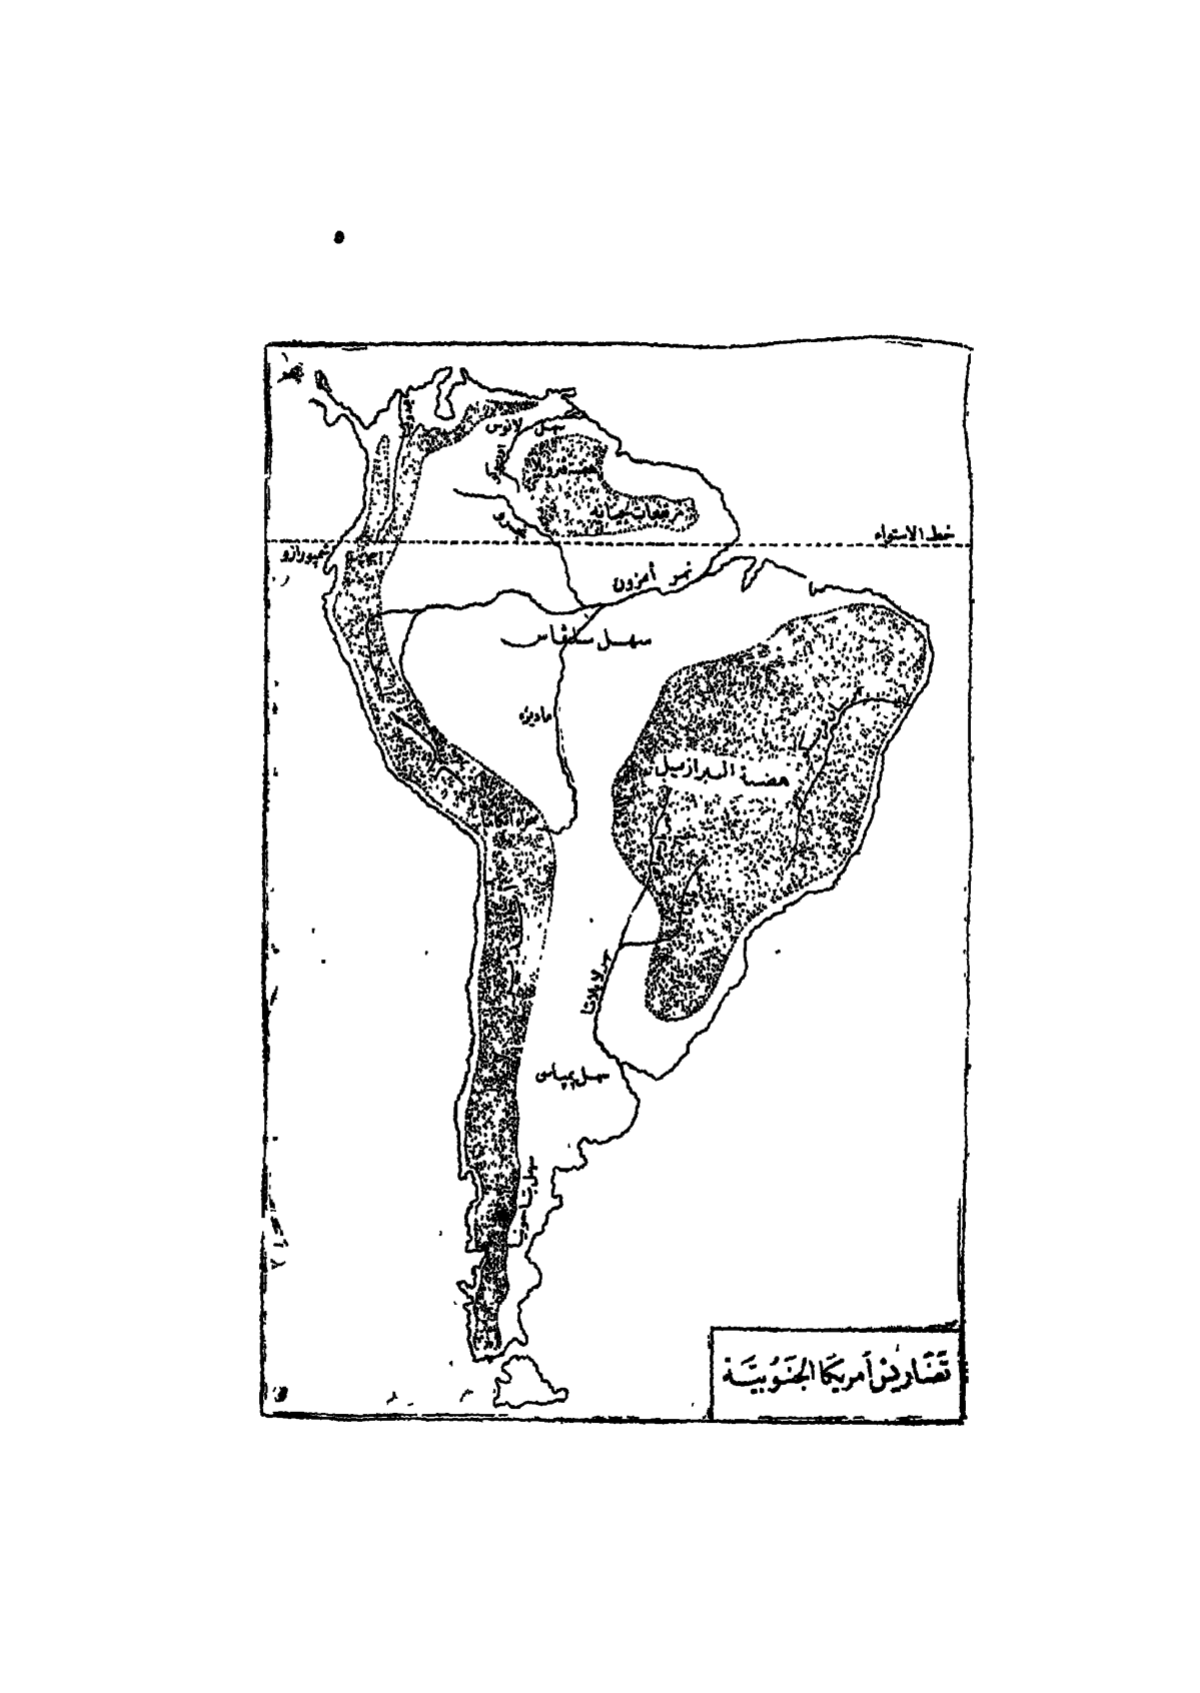 سهل لانوس
فنزويلا
مرتفعات جيانه
خط الاستواء
شمبورازو
نهر أمزون
سهل سلفاس
ماديره
هضبة البرازيل
لابلاتا
سهل بمپاس
تضاريس أمريكا الجنوبية